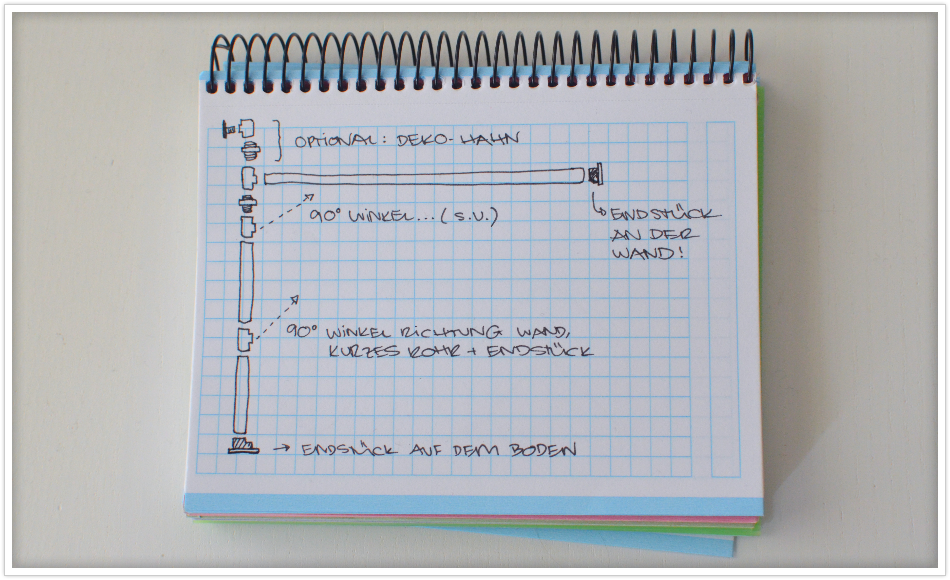 OPTIONAL: DEKO-HAHN
90° WINKEL...(S.U.)
ENDSTÜCK
AN DER
WAND!
90° WINKEL RICHTUNG WAND,
KURZES ROHR + ENDSTÜCK
→ ENDSTÜCK AUF DEM BODEN